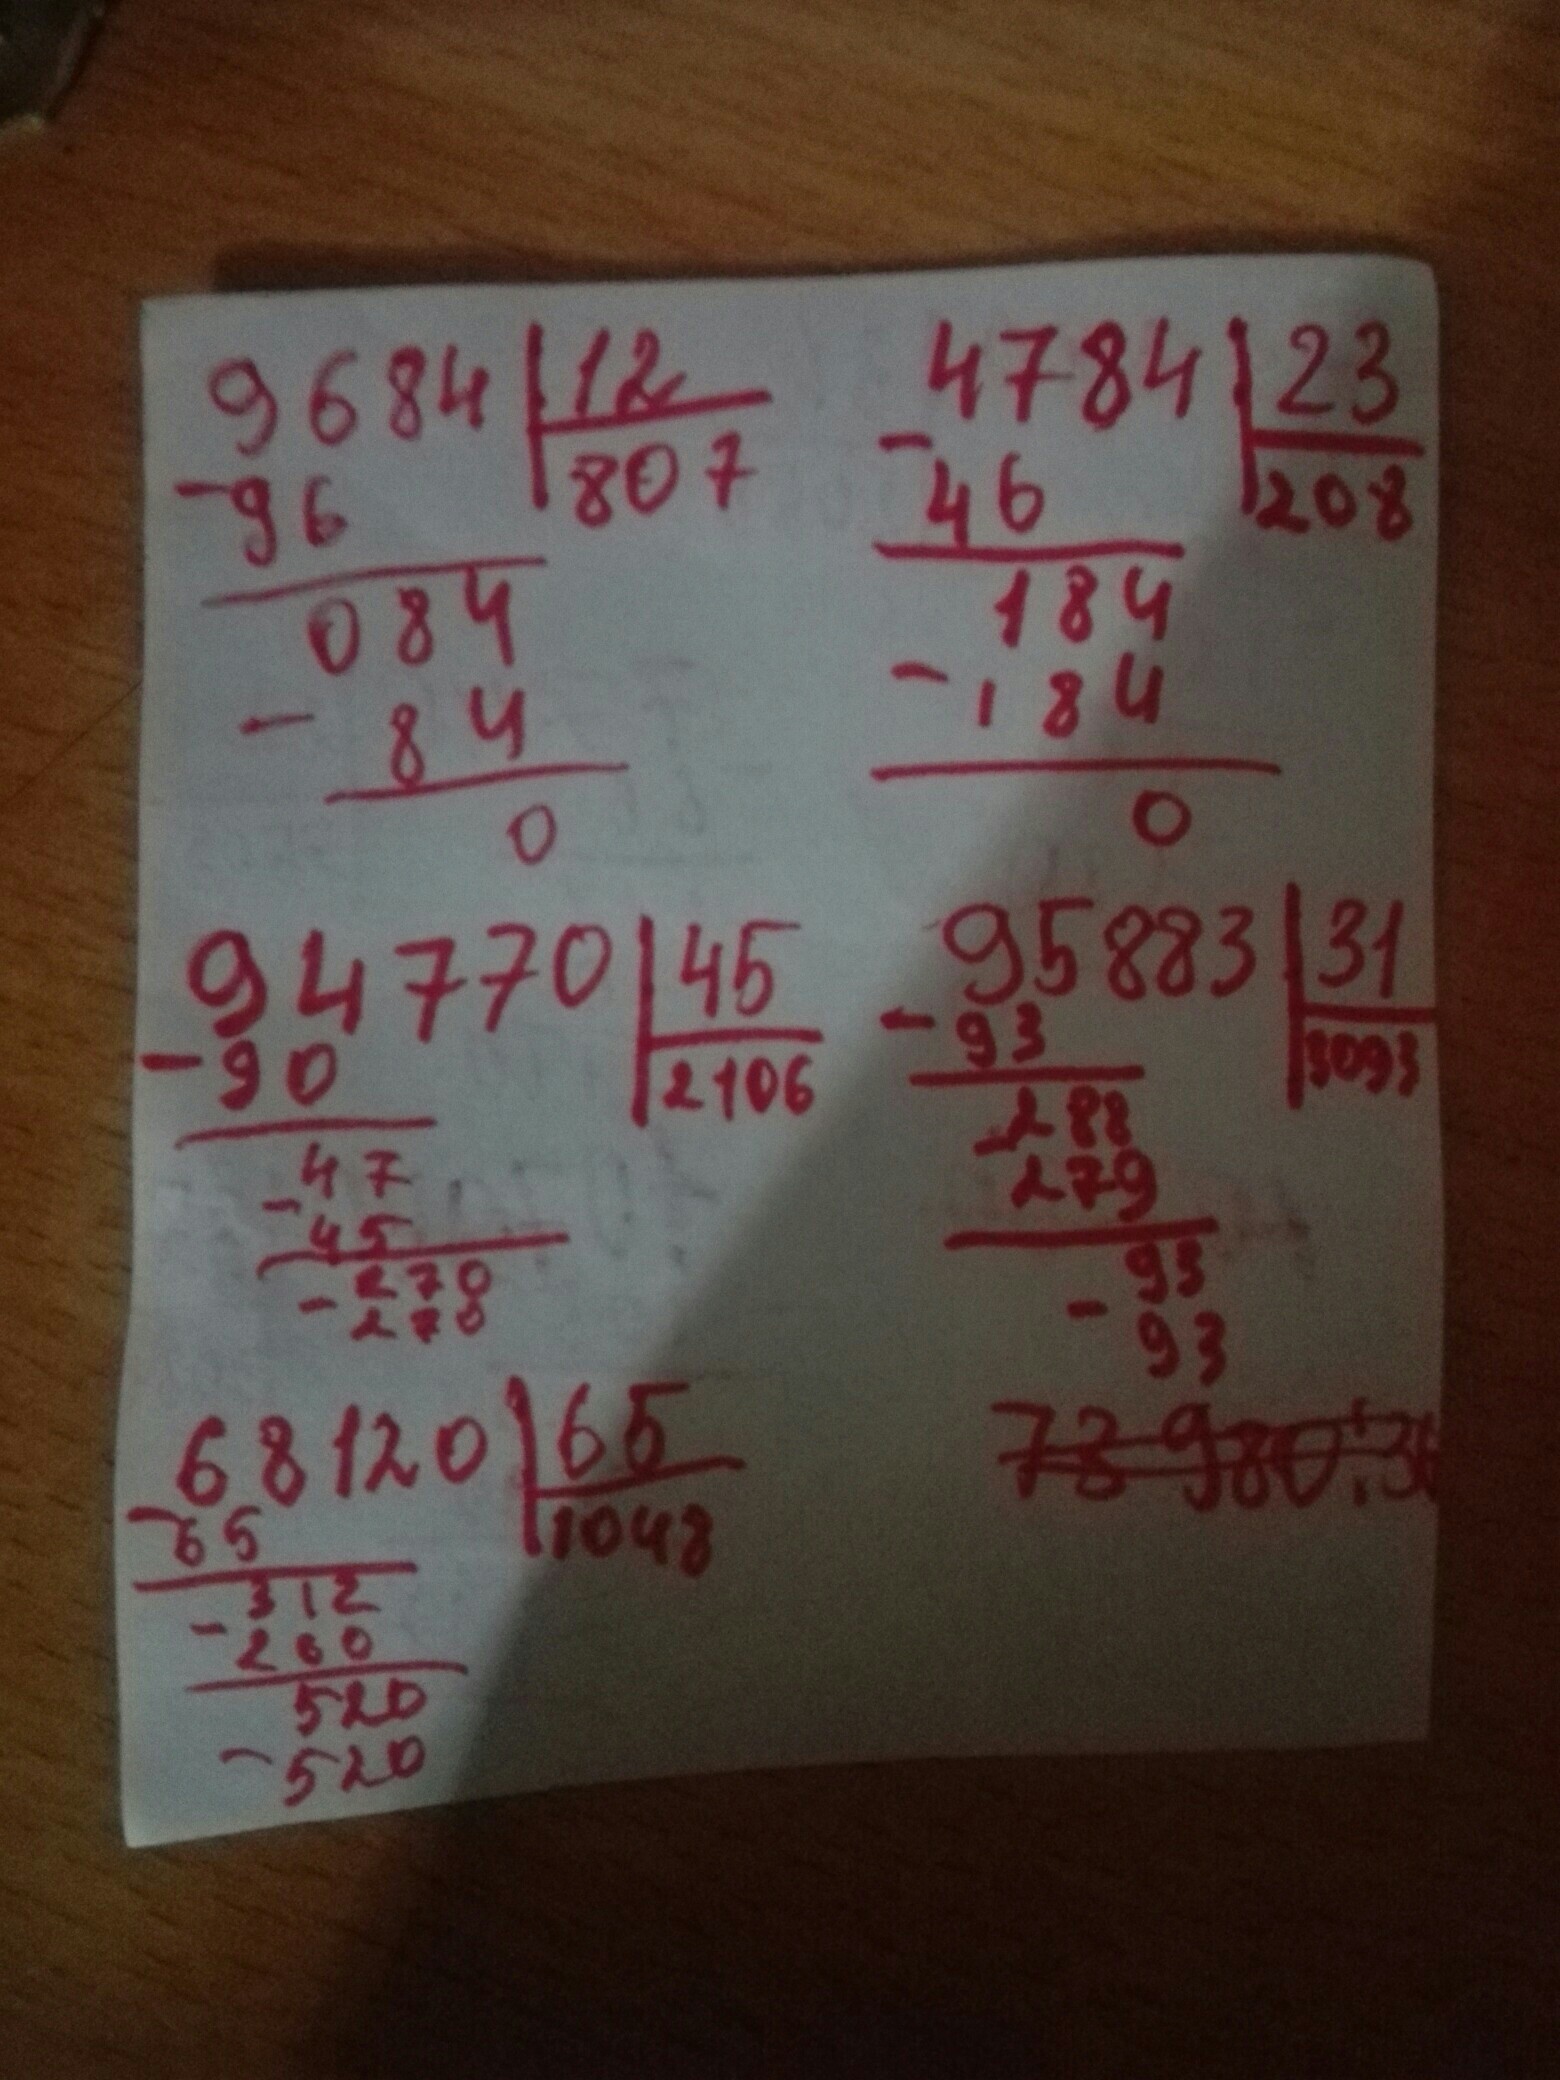 9684 | 12
-96 | 807
084
- 84
0
4784 | 23
-46 | 208
184
-184
0
94770 | 45
-90 | 2106
47
-45
270
-270
95883 | 31
-93 | 3093
288
-279
93
-93
68120 | 65
-65 | 1048
312
-260
520
-520